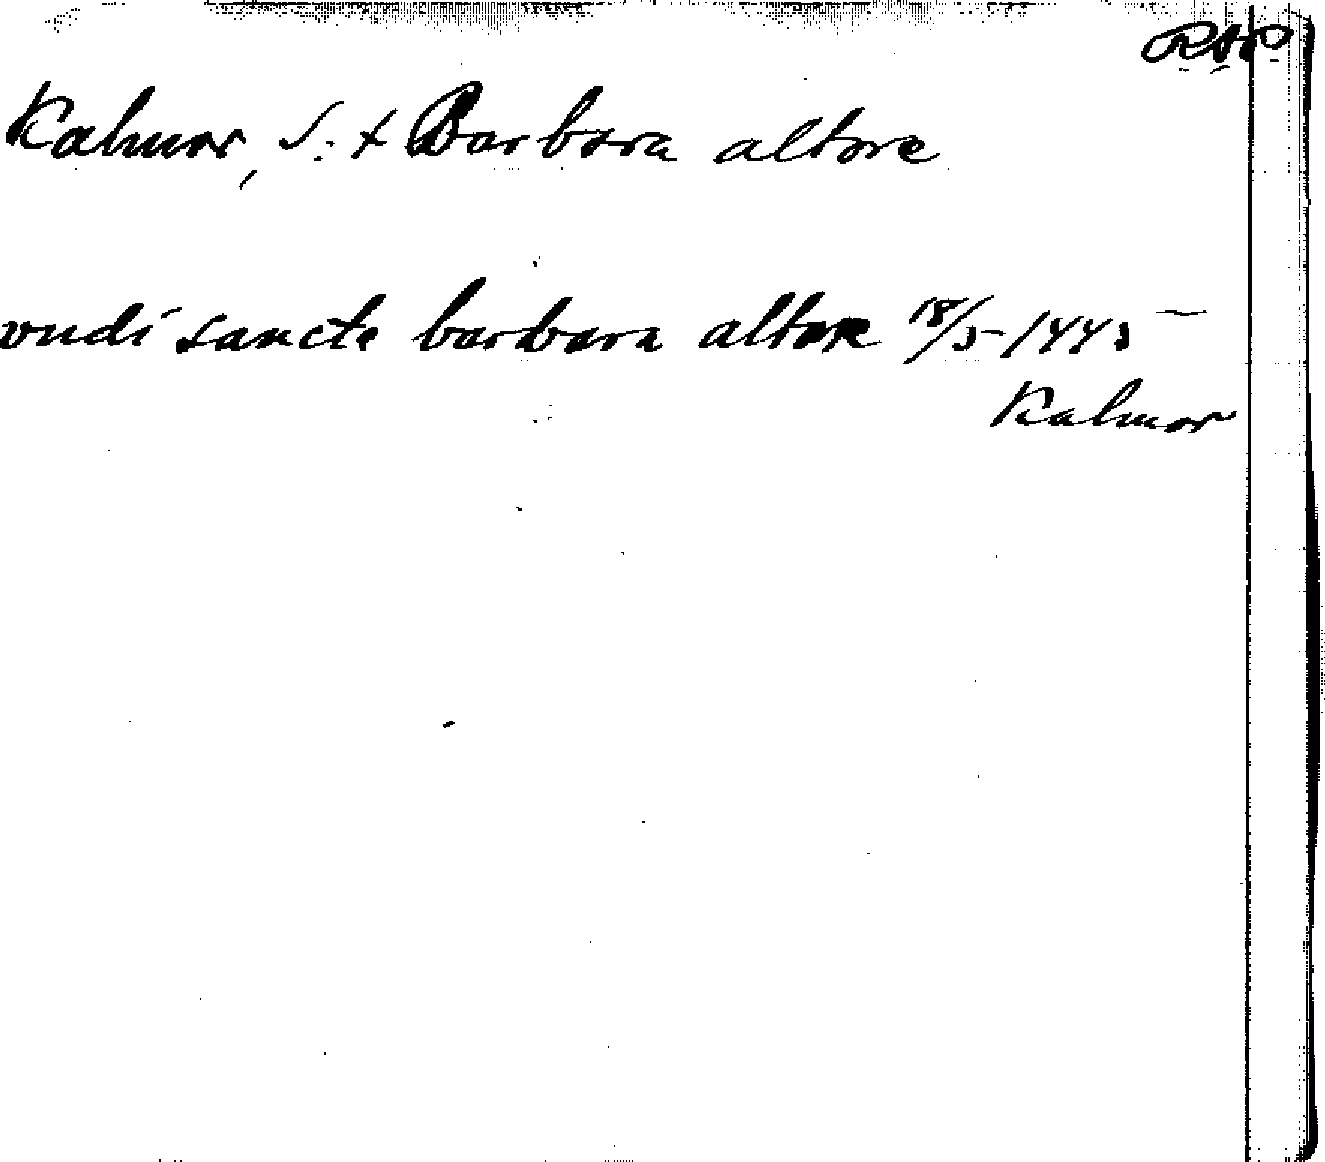 RAP
Kalmar, S:t Barbara altare
vndi sancte barbara altare 18/5 1445
Kalmar